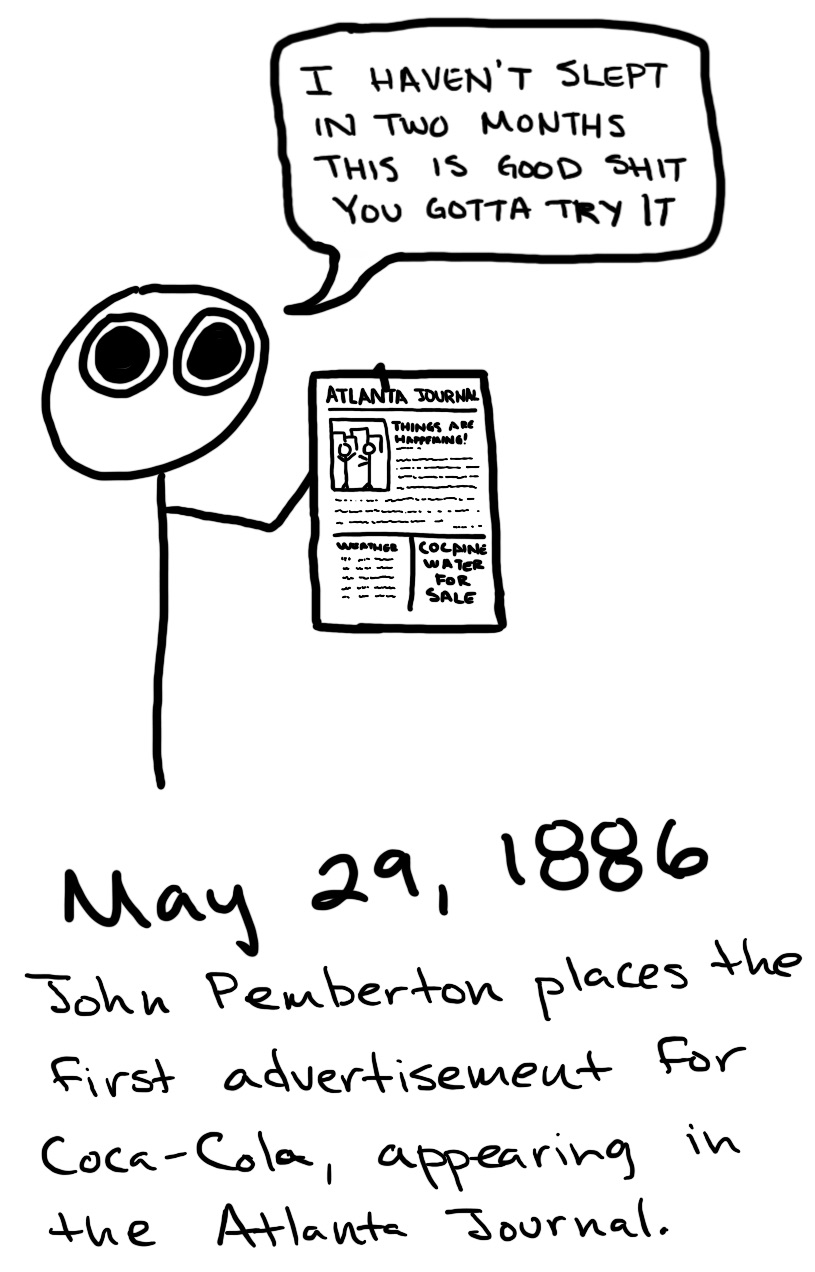 I HAVEN'T SLEPT
IN TWO MONTHS
THIS IS GOOD SHIT
YOU GOTTA TRY IT
ATLANTA JOURNAL
THINGS ARE
HAPPENING!
WEATHER
COCAINE
WATER
FOR
SALE
May 29, 1886
John Pemberton places the
first advertisement for
Coca-Cola, appearing in
the Atlanta Journal.